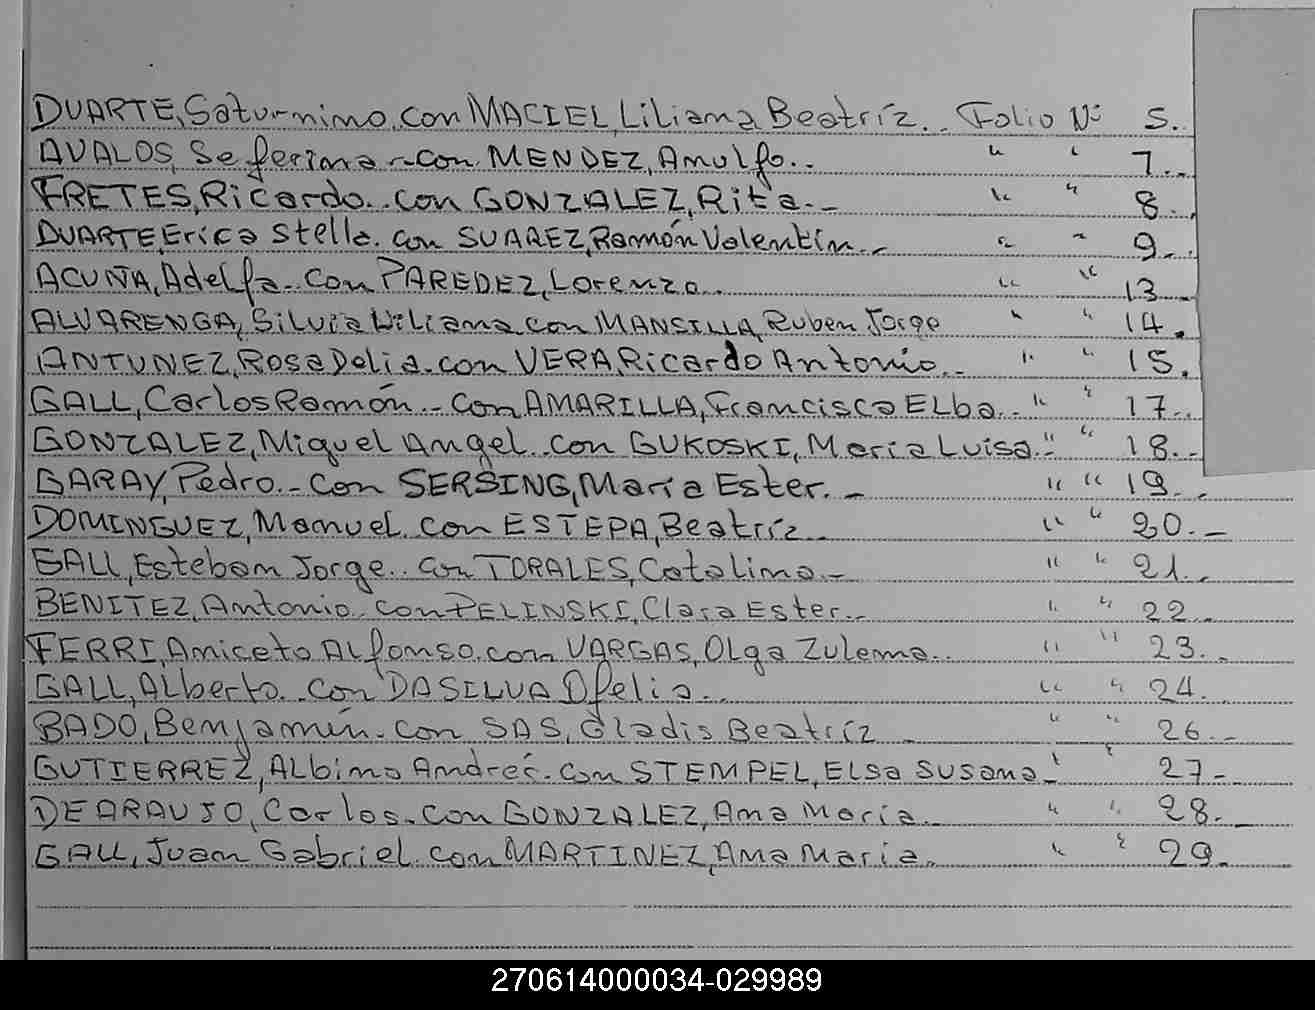 DUARTE, Saturnino. con MACIEL, Liliana Beatríz.. Folio Nº 5.
AVALOS, Seferina.-con. MENDEZ, Arnulfo.. " " 7.-
FRETES, Ricardo.. con GONZALEZ, Rita.- " " 8.
DUARTE, Erica Stella. con SUAREZ, Ramón Valentín.- " " 9.-
ACUÑA, Adelfa.- con PAREDEZ, Lorenzo.. " " 13
ALVARENGA, Silvia Liliana con MANSILLA, Ruben Jorge " " 14.
ANTUNEZ, Rosa Delia.-con VERA, Ricardo Antonio.. " " 15.
GALL, Carlos Ramón.- con AMARILLA, Francisca Elba.. " " 17.-
GONZALEZ, Miguel Angel. con GUKOSKI, María Luisa.- " " 18.-
GARAY, Pedro.- con SERSING, María Ester.- " " 19.-
DOMINGUEZ, Manuel. con ESTEPA, Beatríz.. " " 20.-
GALL, Esteban Jorge.. con TORALES, Catalina.- " " 21.-
BENITEZ, Antonio.. con PELINSKI, Clara Ester.. " " 22.-
FERRI, Aniceto Alfonso. con VARGAS, Olga Zulema.. " " 23..
GALL, Alberto. con DASILVA Ofelia.. " " 24.
BADO, Benjamín.- con SAS, Gladis Beatríz - " " 26.-
GUTIERREZ, Albino Andrés. con STEMPEL, Elsa Susana.- " " 27.-
DE ARAUJO, Carlos.-con GONZALEZ, Ana María.- " " 28.-
GALL, Juan Gabriel. con MARTINEZ, Ana María.. " " 29.-
270614000034-029989